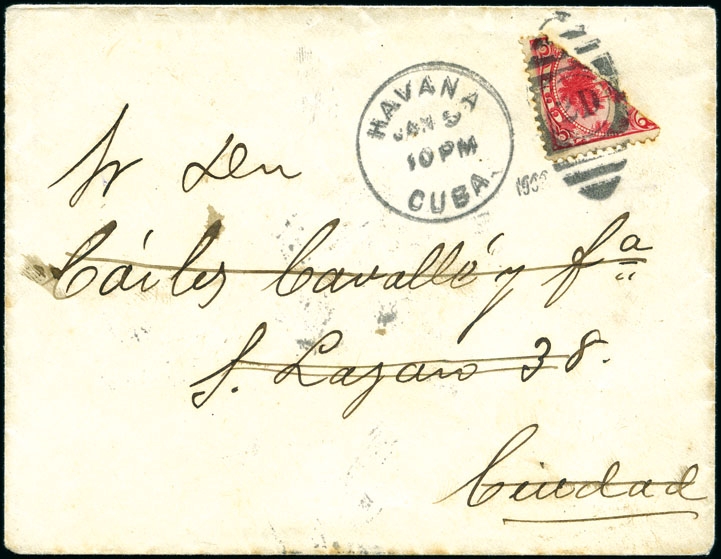 HAVANA
JAN 5
10 PM
CUBA.
Sr Don
Cárlos Cavalló y fª
S. Lazaro 38.
Ciudad